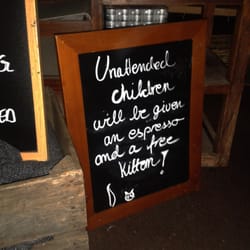 Unattended
children
will be given
an espresso
and a free
Kitten!